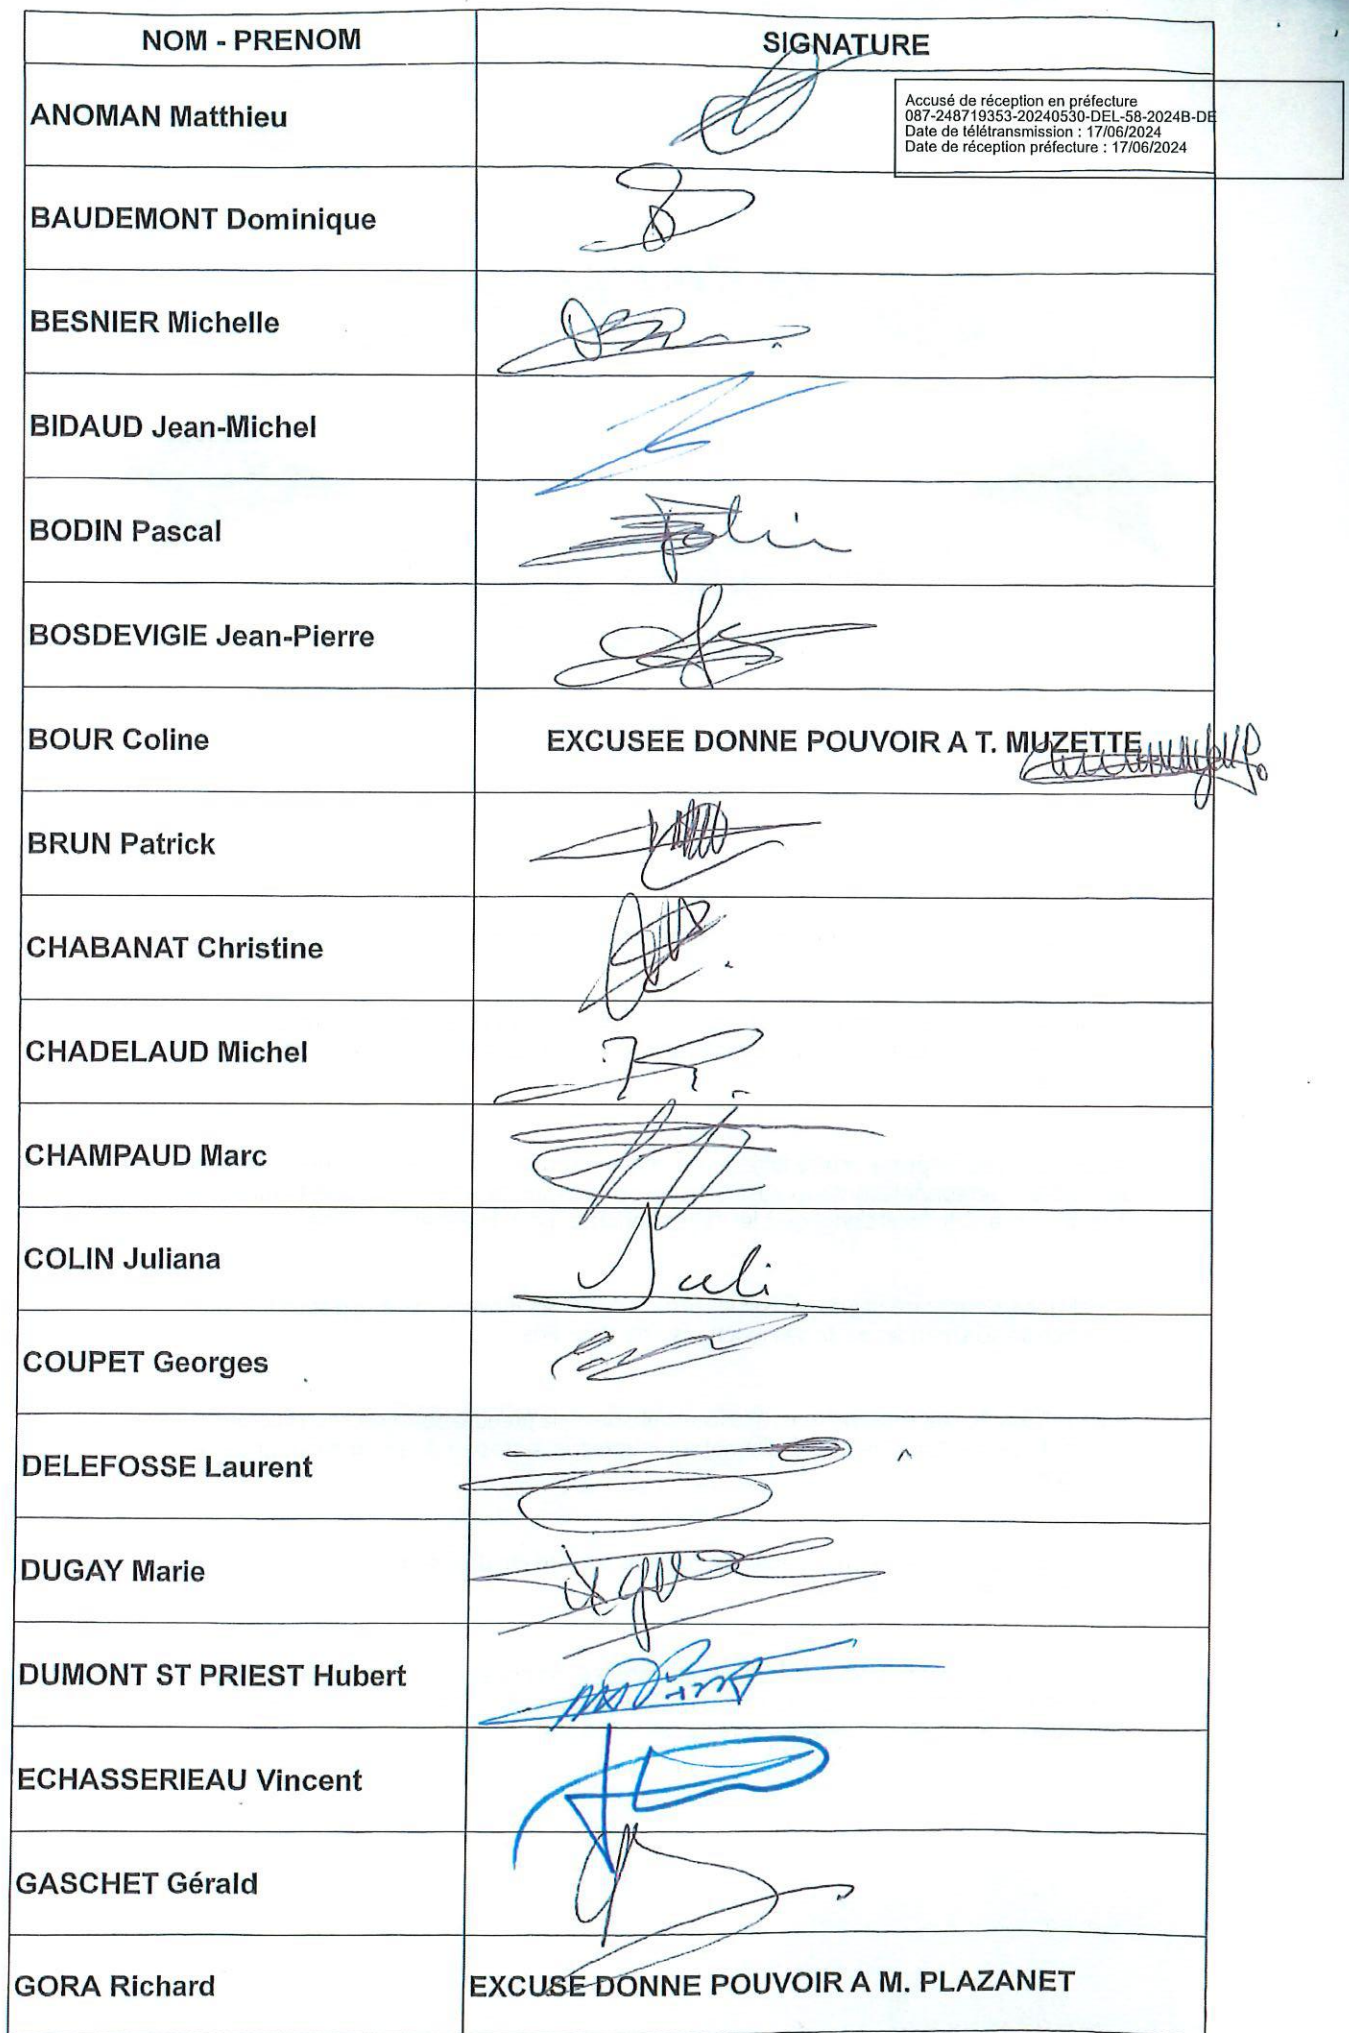 NOM - PRENOM SIGNATURE
ANOMAN Matthieu
Accusé de réception en préfecture
087-248719353-20240530-DEL-58-2024B-DE
Date de télétransmission : 17/06/2024
Date de réception préfecture : 17/06/2024
BAUDEMONT Dominique
BESNIER Michelle
BIDAUD Jean-Michel
BODIN Pascal
BOSDEVIGIE Jean-Pierre
BOUR Coline EXCUSEE DONNE POUVOIR A T. MUZETTE
BRUN Patrick
CHABANAT Christine
CHADELAUD Michel
CHAMPAUD Marc
COLIN Juliana Juli
COUPET Georges
DELEFOSSE Laurent
DUGAY Marie
DUMONT ST PRIEST Hubert
ECHASSERIEAU Vincent
GASCHET Gérald
GORA Richard EXCUSE DONNE POUVOIR A M. PLAZANET